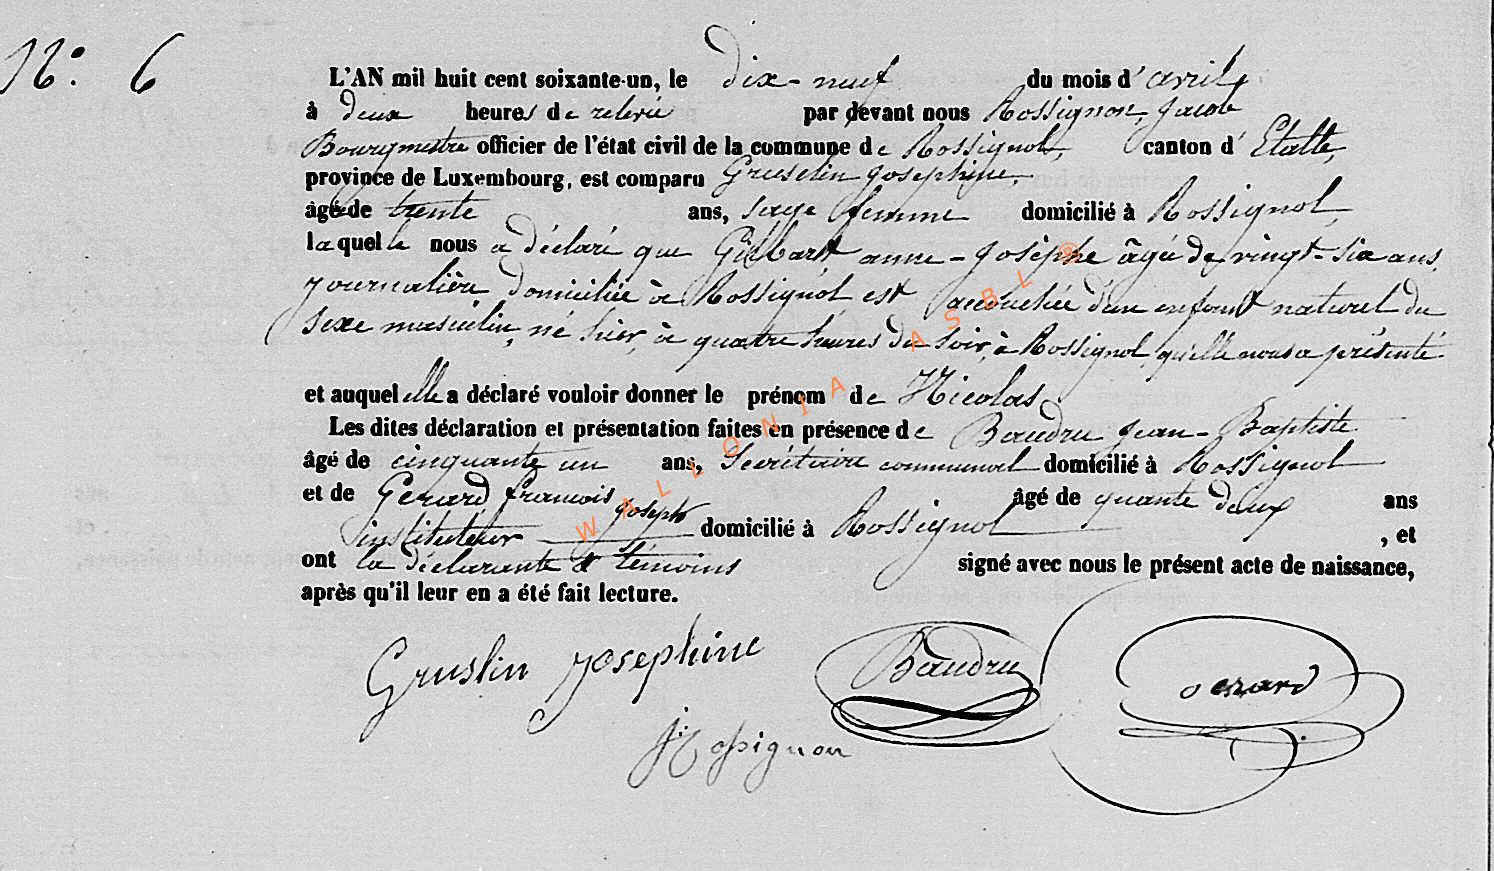 N°. 6
L'AN mil huit cent soixante-un, le dix-neuf du mois d'avril,
à deux heures de relevée par devant nous Rossignon, Jacob
Bourgmestre officier de l'état civil de la commune de Rossignol, canton d'Etalle,
province de Luxembourg, est comparu Gruselin Josephine,
âgé de trente ans, sage femme domicilié à Rossignol,
laquelle nous a déclaré que Gillardt anne-Josèphe âgée de vingt-six ans,
journalière domiciliée à Rossignol est accouchée d'un enfant naturel du
sexe masculin, né hier, à quatre heures du soir, à Rossignol, qu'elle nous a présenté
et auquel elle a déclaré vouloir donner le prénom de Nicolas.
Les dites déclaration et présentation faites en présence de Baudru Jean-Baptiste
âgé de cinquante un ans, Secrétaire communal domicilié à Rossignol
et de Gerard françois Joseph âgé de quante deux ans
instituteur domicilié à Rossignol , et
ont la déclarante & témoins signé avec nous le présent acte de naissance,
après qu'il leur en a été fait lecture.
Gruslin Josephine Baudru Gerard
J. Rossignon
WALLONIA ASBL ®